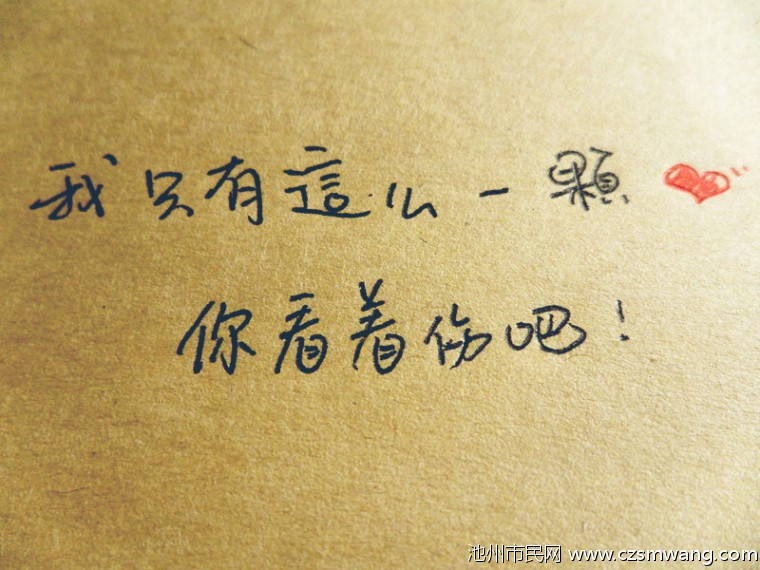 我只有這么一顆
你看着伤吧!
池州市民网 www.czsmwang.com